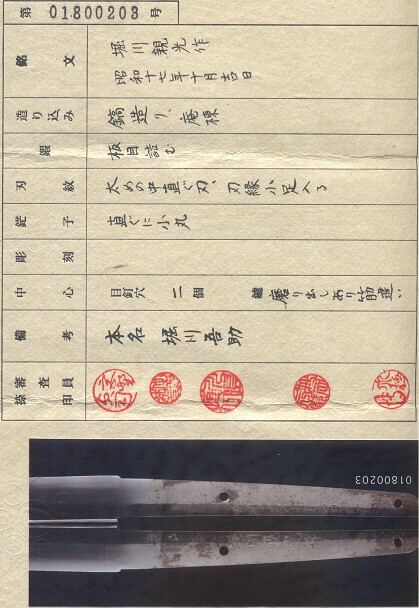 第 01800203 号
銘文 堀川親光作
昭和十七年十月吉日
造り込み 鎬造り、庵棟
鍛 板目詰む
刃紋 太めの中直ぐ刃、刃縁小足入る
鋩子 直ぐに小丸
彫刻
中心 目釘穴 二個 鑢 磨り出しあり筋違い
備考 本名堀川吾助
審査員捺印
01800203